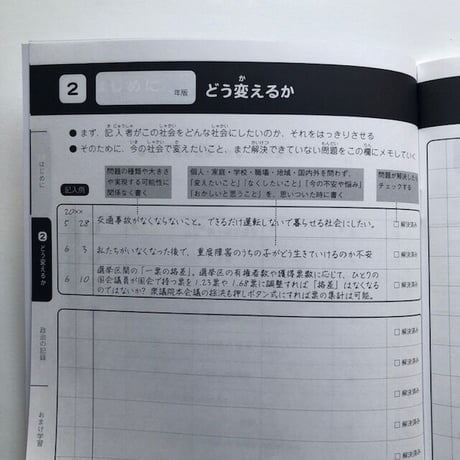 2
はじめに
年版
どう変えるか
か
● まず、記入者がこの社会をどんな社会にしたいのか、それをはっきりさせる
● そのために、今の社会で変えたいこと、まだ解決できていない問題をこの欄にメモしていく
記入例
問題の種類や大きさ
や実現する可能性に
関係なく書く
個人・家庭・学校・職場・地域・国内外を問わず、
「変えたいこと」「なくしたいこと」「今の不安や悩み」
「おかしいと思うこと」を、思いついた時に書く
問題が解決した
チェックする
20××
5 28 交通事故がなくならないこと。できるだけ運転しないで暮らせる社会にしたい。 □解決済み
6 3 私たちがいなくなった後で、重度障害のうちの子がどう生きていけるのか不安 □解決済み
6 10 選挙区間の「一票の格差」。選挙区の有権者数や獲得票数に応じて、ひとりの
国会議員が国会で持つ票を1.23票や1.68票に調整すれば「格差」はなくなる
のではないか? 衆議院本会議の採決も押しボタン式にすれば票の集計は可能。
□解決済み
□解決済み
□解決済み
□解決済み
□解決済み
□解決済み
はじめに
2 どう変えるか
政治の記録
おまけ学習